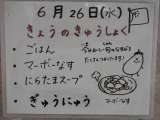 6月26日(水)
きょうのきゅうしょく
ごはん
マーボーなす
にらたまスープ
ぎゅうにゅう
マーボーなす